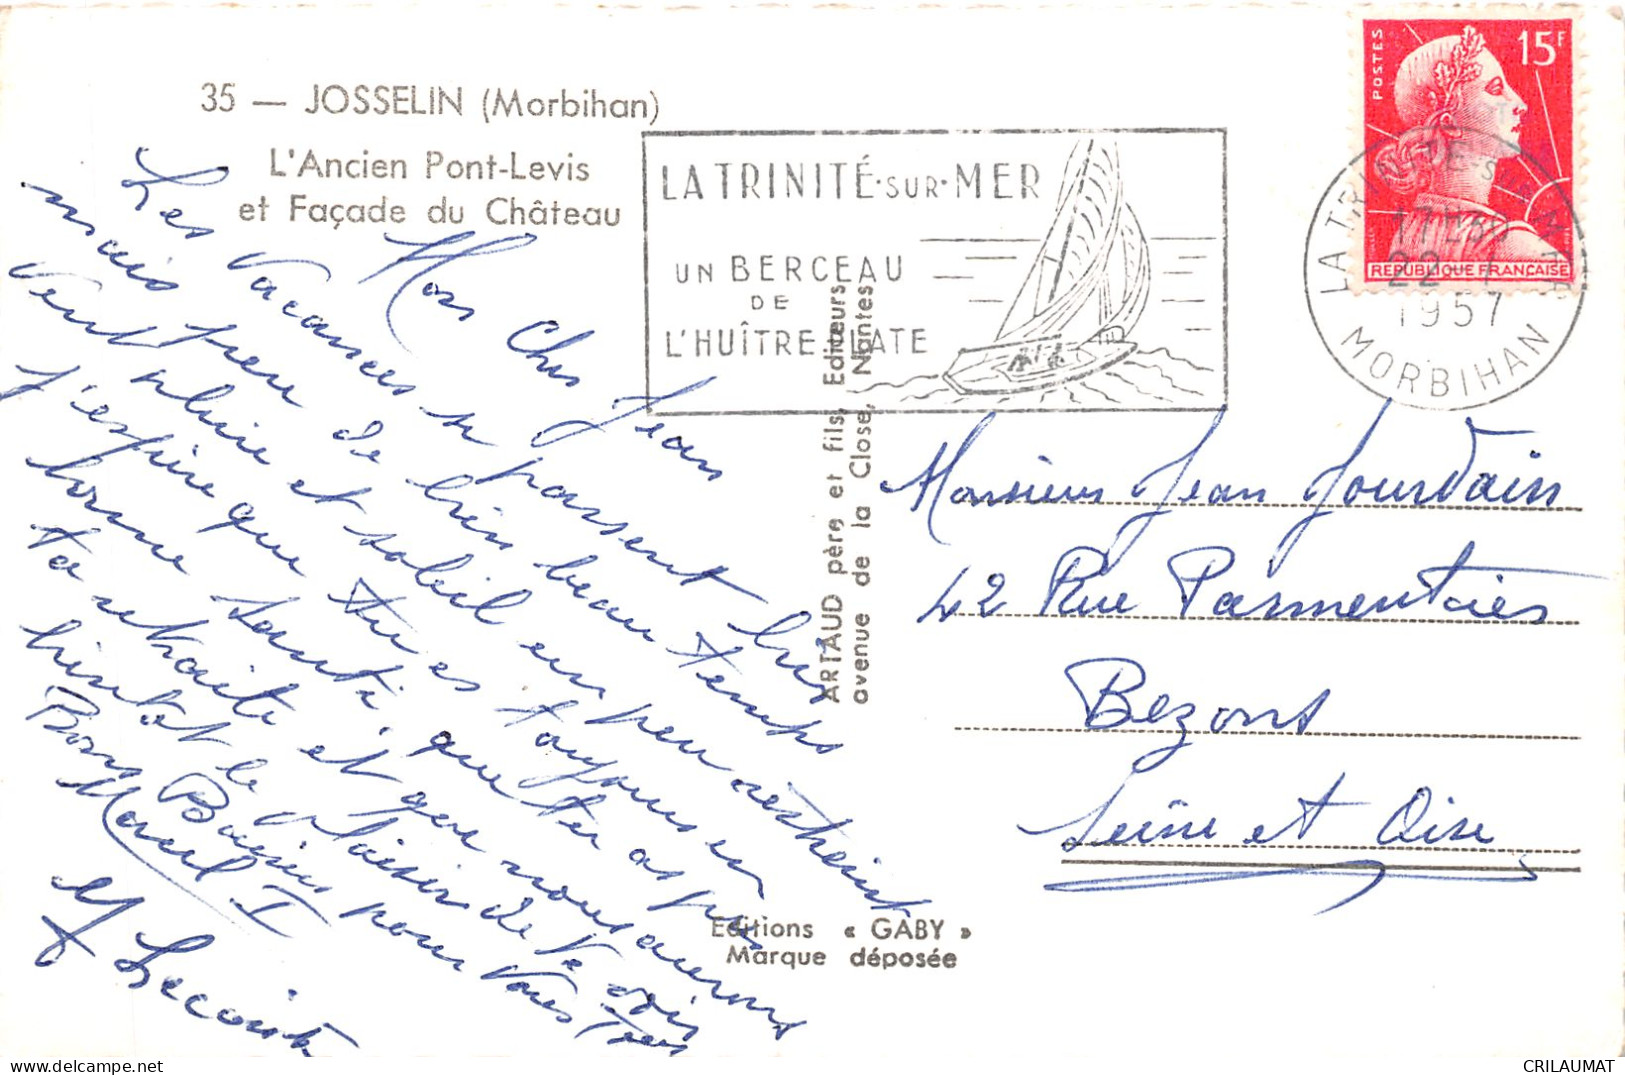 35 — JOSSELIN (Morbihan)
L'Ancien Pont-Levis
et Façade du Château
LA TRINITÉ·SUR·MER
UN BERCEAU
DE
L'HUÎTRE PLATE
POSTES
15F
REPUBLIQUE FRANÇAISE
LA TRINITE SUR MER
17H30
22
1957
MORBIHAN
Mon cher Jean
Les vacances se passent bien
mais peu de très beau temps
vent pluie et soleil un peu
J'espère que tu es toujours en
bonne santé, que tu as pris
ta retraite et que nous aurons
bientôt le plaisir de te voir
Bons Baisers pour vous Tous
Marcel I
Lecointe
Monsieur Jean Jourdain
42 Rue Parmentier
Bezons
Seine et Oise
ARTAUD père et fils, Editeurs
avenue de la Close, Nantes
Editions « GABY »
Marque déposée
CRILAUMAT